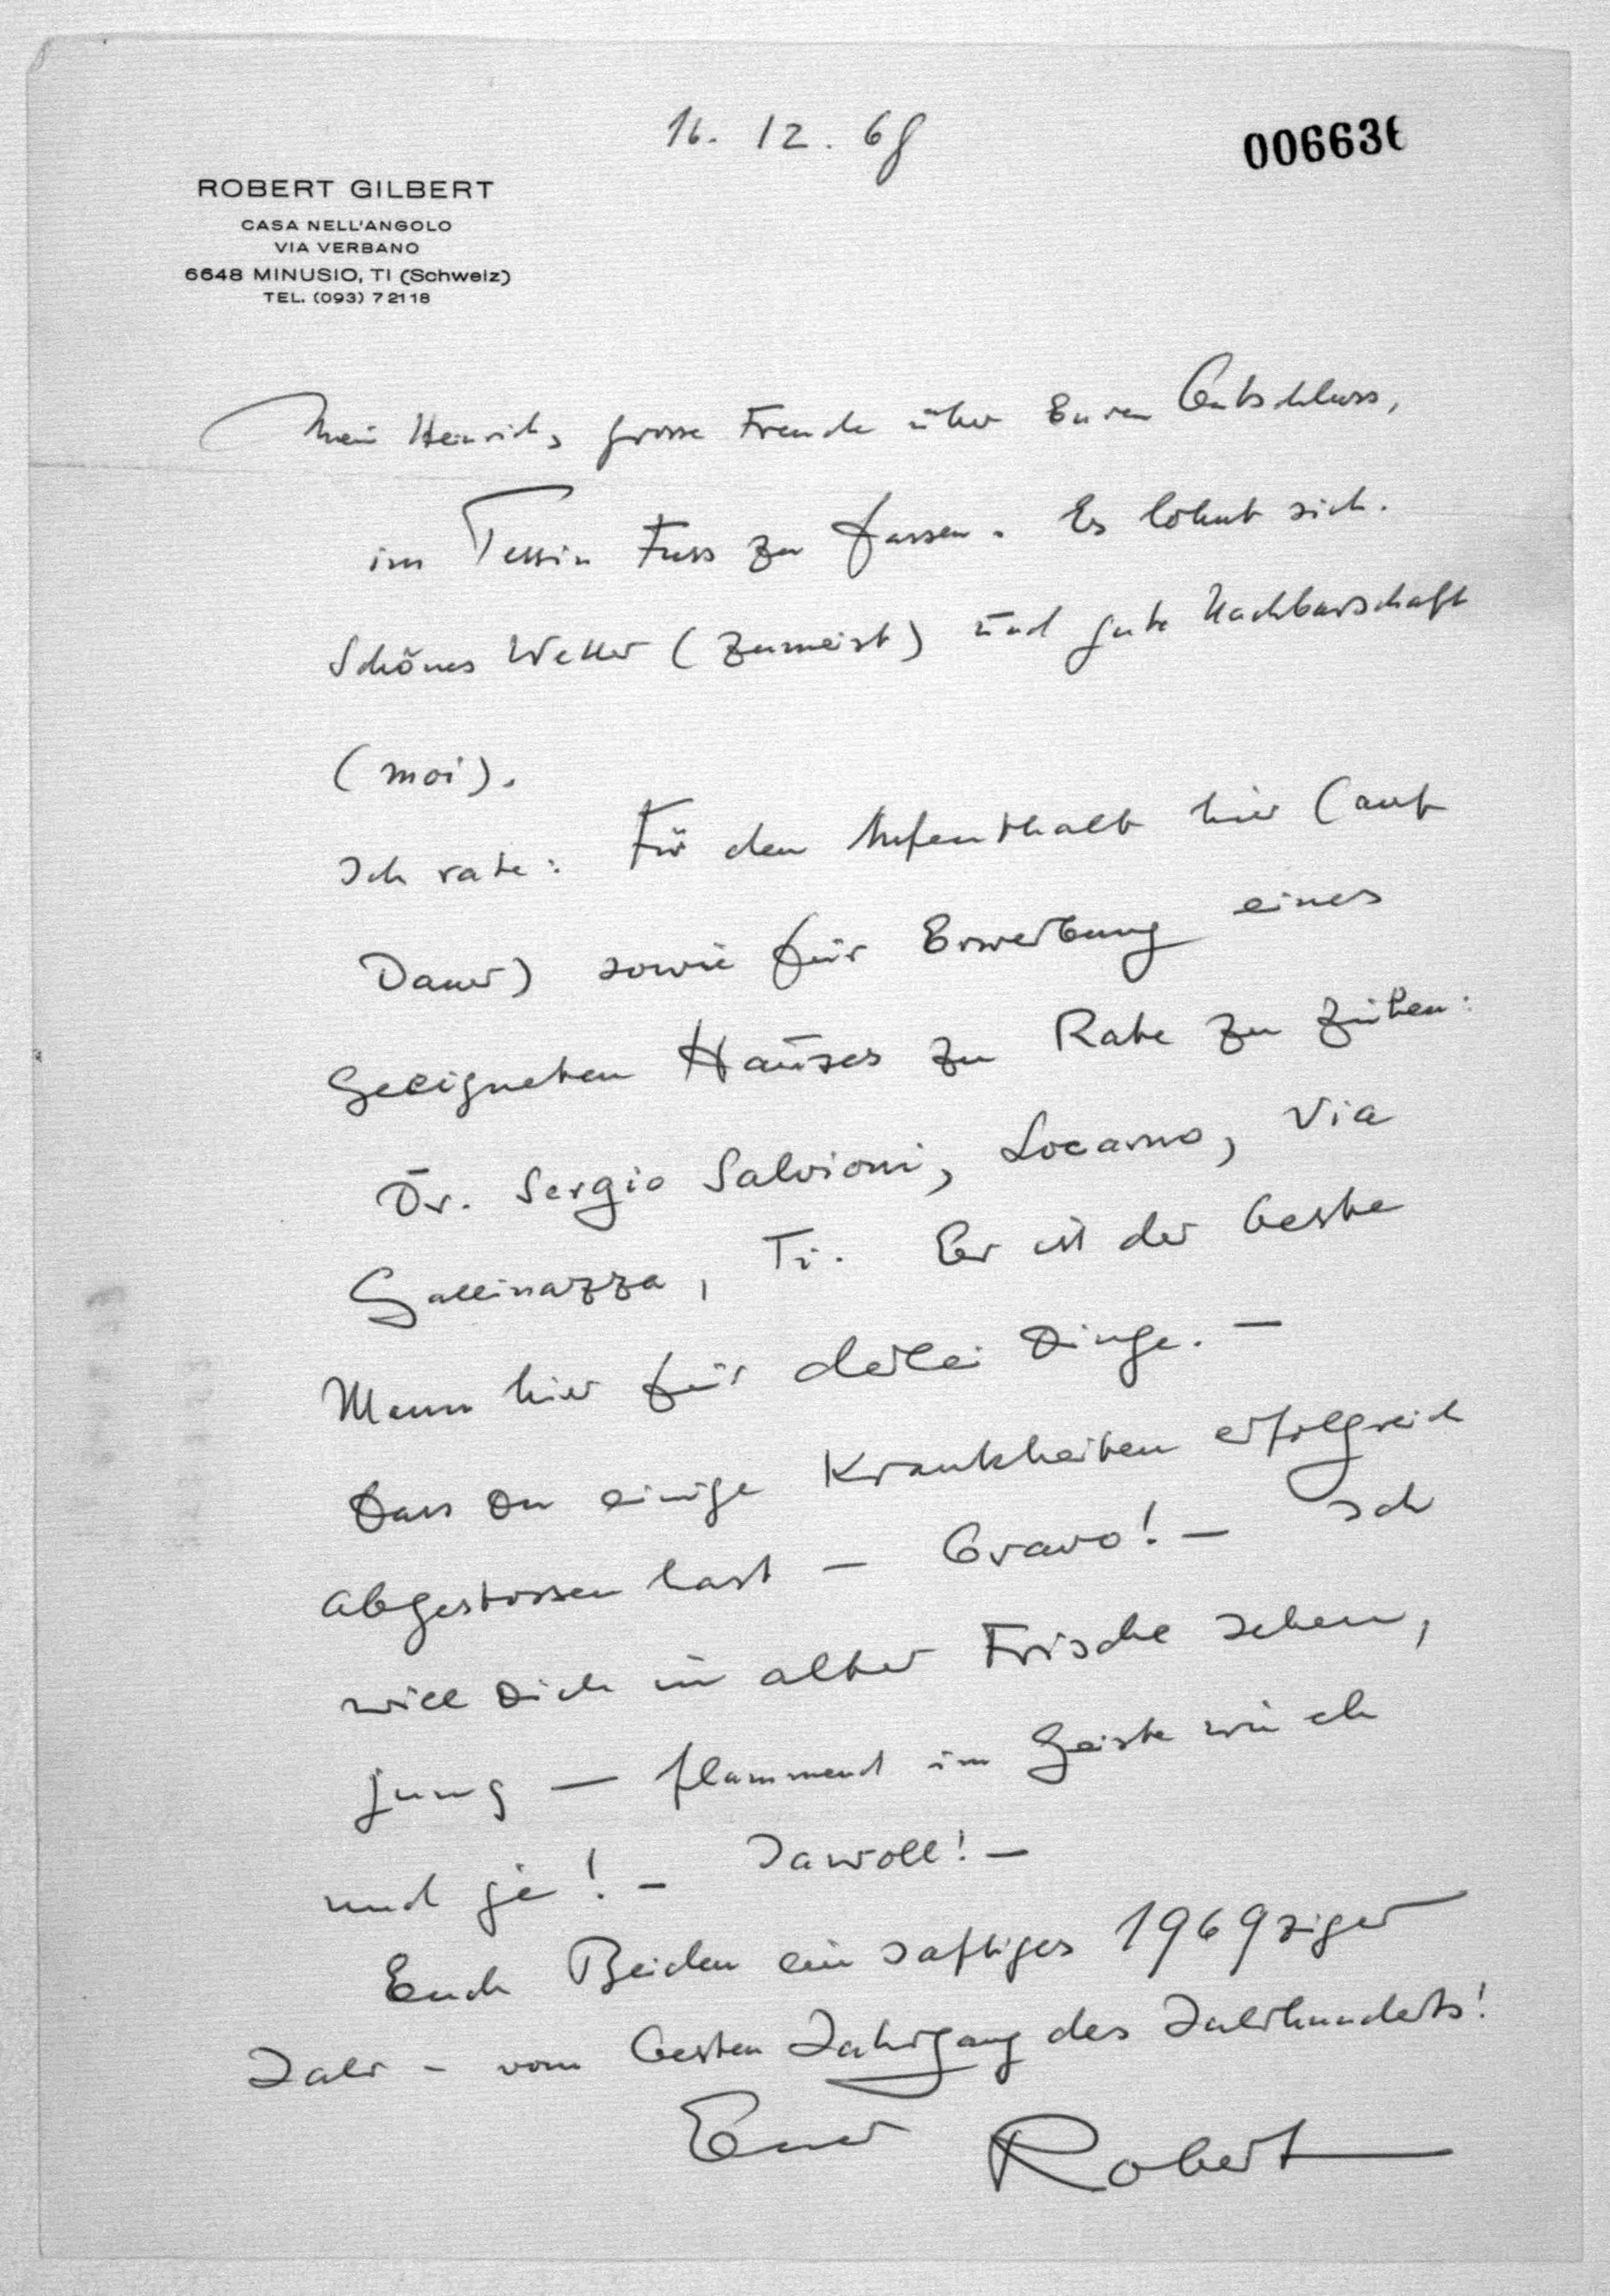 16. 12. 68
006636
ROBERT GILBERT
CASA NELL'ANGOLO
VIA VERBANO
6648 MINUSIO, TI (Schweiz)
TEL. (093) 7 21 18
Mein Heinrich, grosse Freude über Euren Entschluss,
im Tessin Fuss zu fassen. Es lohnt sich.
Schönes Wetter (zumeist) und gute Nachbarschaft
(moi).
Ich rate: Für den Aufenthalt hier (auf
Dauer) sowie für Erwerbung eines
geeigneten Hauses zu Rate zu ziehen:
Dr. Sergio Salvioni, Locarno, Via
Gallinazza, Ti. Er ist der beste
Mann hier für derlei Dinge. —
Dass Du einige Krankheiten erfolgreich
abgestossen hast — bravo! — Ich
will Dich in alter Frische sehen,
jung — flammend im Geiste wie eh
und je! — Jawoll! —
Euch Beiden ein saftiges 1969ziger
Jahr – vom besten Jahrgang des Jahrhunderts!
Euer Robert